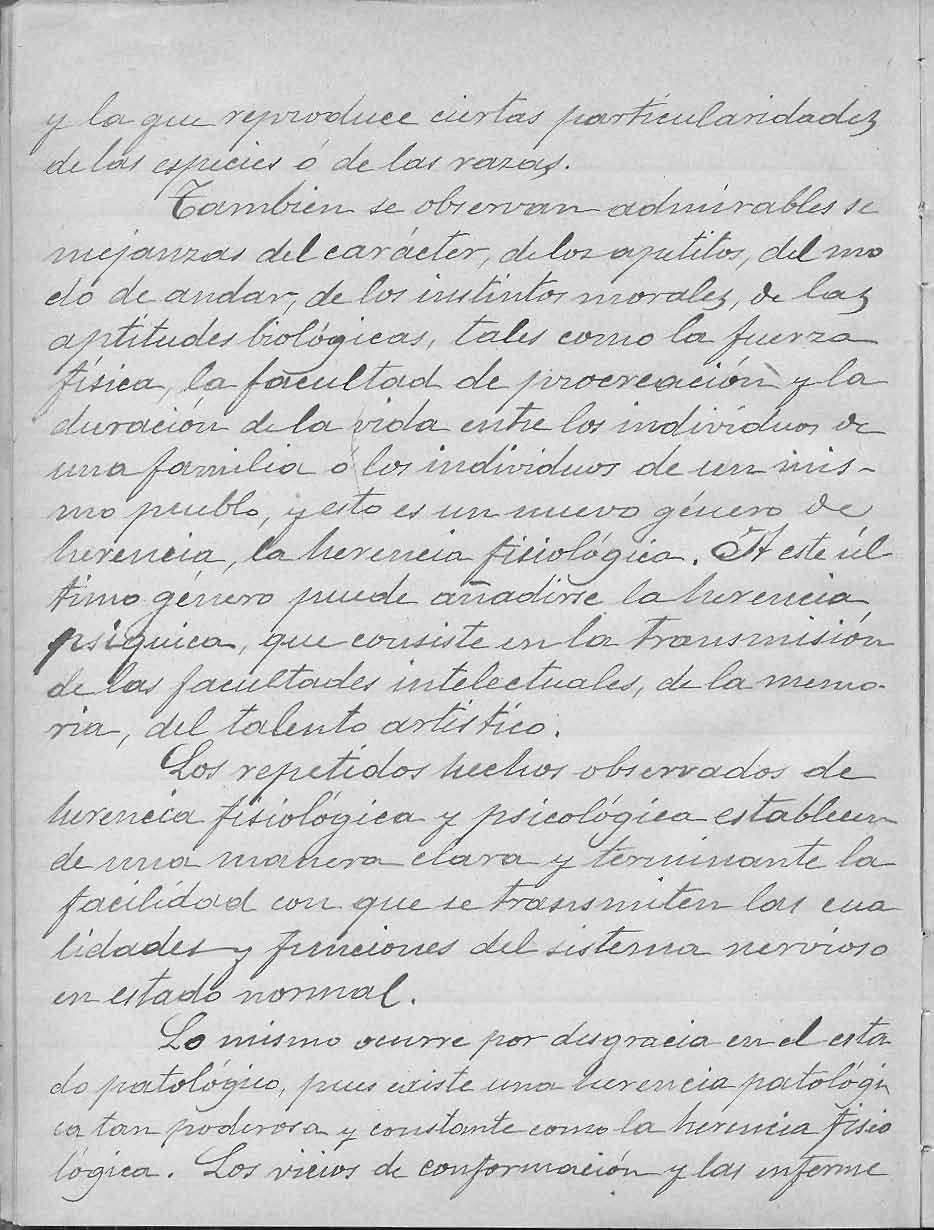 y la que reproduce ciertas particularidades
de las especies ó de las razas.
Tambien se observan admirables se
mejanzas del carácter, de los apetitos, del mo
do de andar, de los instintos morales, de las
aptitudes biológicas, tales como la fuerza
física, la facultad de procreación y la
duración de la vida entre los individuos de
una familia ó los individuos de un mis-
mo pueblo, y esto es un nuevo género de
herencia, la herencia fisiológica. A este úl
timo género puede añadirse la herencia
psíquica, que consiste en la transmisión
de las facultades intelectuales, de la memo-
ria, del talento artístico.
Los repetidos hechos observados de
herencia fisiológica y psicológica establecen
de una manera clara y terminante la
facilidad con que se transmiten las cua
lidades y funciones del sistema nervioso
en estado normal.
Lo mismo ocurre por desgracia en el esta
do patológico, pues existe una herencia patológi
ca tan poderosa y constante como la herencia fisio
lógica. Los vicios de conformación y las enferme